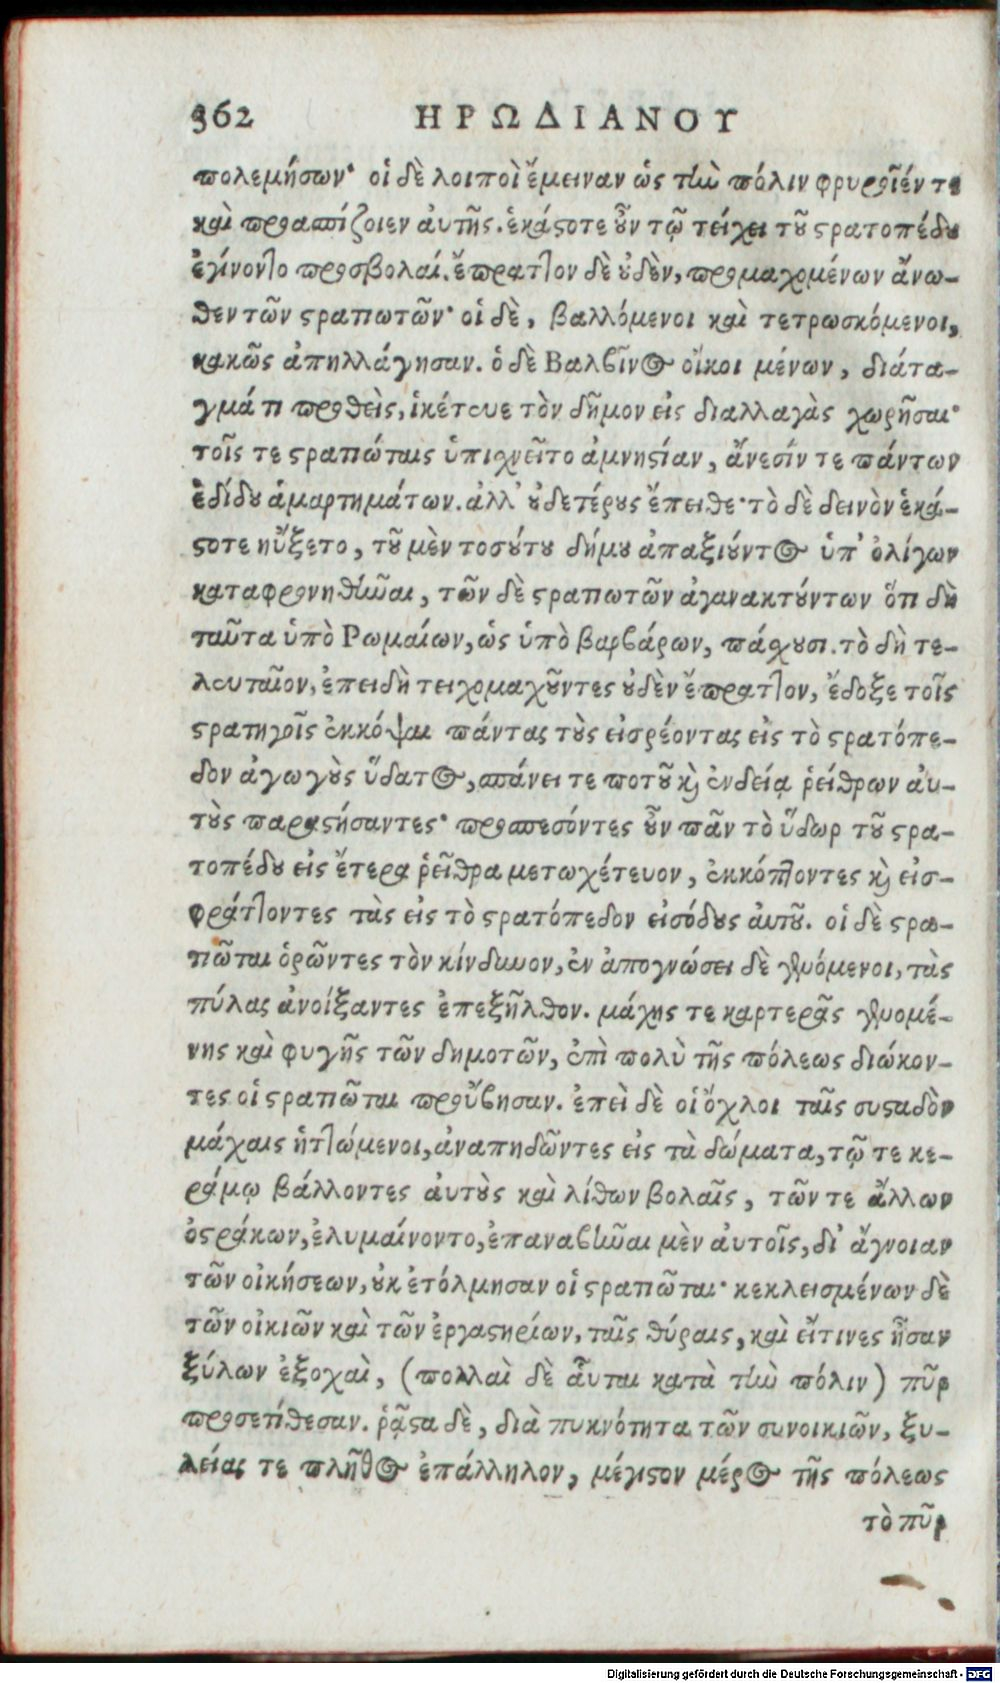 362 ΗΡΩΔΙΑΝΟΥ
πολεμήσων· οἱ δὲ λοιποὶ ἔμειναν ὡς τὴν πόλιν φρυροῖέν τε
καὶ προασπίζοιεν αὐτῆς. ἑκάστοτε οὖν τῷ τείχει τοῦ στρατοπέδου
ἐγίνοντο προσβολαί. ἔπραττον δὲ οὐδὲν, προμαχομένων ἄνω-
θεν τῶν στρατιωτῶν· οἱ δὲ, βαλλόμενοι καὶ τετρωσκόμενοι,
κακῶς ἀπηλλάγησαν. ὁ δὲ Βαλβῖνος οἴκοι μένων, διάτα-
γμά τι προθεὶς, ἱκέτευε τὸν δῆμον εἰς διαλλαγὰς χωρῆσαι·
τοῖς τε στρατιώταις ὑπισχνεῖτο ἀμνηστίαν, ἄνεσίν τε πάντων
ἐδίδου ἁμαρτημάτων. ἀλλ' οὐδετέρους ἔπειθε· τὸ δὲ δεινὸν ἑκά-
στοτε ηὔξετο, τοῦ μὲν τοσούτου δήμου ἀπαξιοῦντος ὑπ' ὀλίγων
καταφρονηθῆναι, τῶν δὲ στρατιωτῶν ἀγανακτούντων ὅτι δὴ
ταῦτα ὑπὸ Ρωμαίων, ὡς ὑπὸ βαρβάρων, πάσχουσι. τὸ δὴ τε-
λευταῖον, ἐπειδὴ τειχομαχοῦντες οὐδὲν ἔπραττον, ἔδοξε τοῖς
στρατηγοῖς ἐκκόψαι πάντας τοὺς εἰσρέοντας εἰς τὸ στρατόπε-
δον ἀγωγοὺς ὕδατος, σπάνει τε ποτοῦ καὶ ἐνδείᾳ ῥείθρων αὐ-
τοὺς παραστήσαντες· προσπεσόντες οὖν πᾶν τὸ ὕδωρ τοῦ στρα-
τοπέδου εἰς ἕτερα ῥεῖθρα μετωχέτευον, ἐκκόπτοντες καὶ εἰσ-
φράττοντες τὰς εἰς τὸ στρατόπεδον εἰσόδους αὐτοῦ. οἱ δὲ στρα-
τιῶται ὁρῶντες τὸν κίνδυνον, ἐν ἀπογνώσει δὲ γενόμενοι, τὰς
πύλας ἀνοίξαντες ἐπεξῆλθον. μάχης τε καρτερᾶς γενομέ-
νης καὶ φυγῆς τῶν δημοτῶν, ἐπὶ πολὺ τῆς πόλεως διώκον-
τες οἱ στρατιῶται προὔβησαν. ἐπεὶ δὲ οἱ ὄχλοι ταῖς συσταδὸν
μάχαις ἡττώμενοι, ἀναπηδῶντες εἰς τὰ δώματα, τῷ τε κε-
ράμῳ βάλλοντες αὐτοὺς καὶ λίθων βολαῖς, τῶν τε ἄλλων
ὀστράκων, ἐλυμαίνοντο, ἐπαναβῆναι μὲν αὐτοῖς, δι' ἄγνοιαν
τῶν οἰκήσεων, οὐκ ἐτόλμησαν οἱ στρατιῶται· κεκλεισμένων δὲ
τῶν οἰκιῶν καὶ τῶν ἐργαστηρίων, ταῖς θύραις, καὶ εἴτινες ἦσαν
ξύλων ἐξοχαὶ, (πολλαὶ δὲ αὗται κατὰ τὴν πόλιν) πῦρ
προσετίθεσαν. ῥᾷστα δὲ, διὰ πυκνότητα τῶν συνοικιῶν, ξυ-
λείας τε πλῆθος ἐπάλληλον, μέγιστον μέρος τῆς πόλεως
τὸ πῦρ
Digitalisierung gefördert durch die Deutsche Forschungsgemeinschaft - DFG